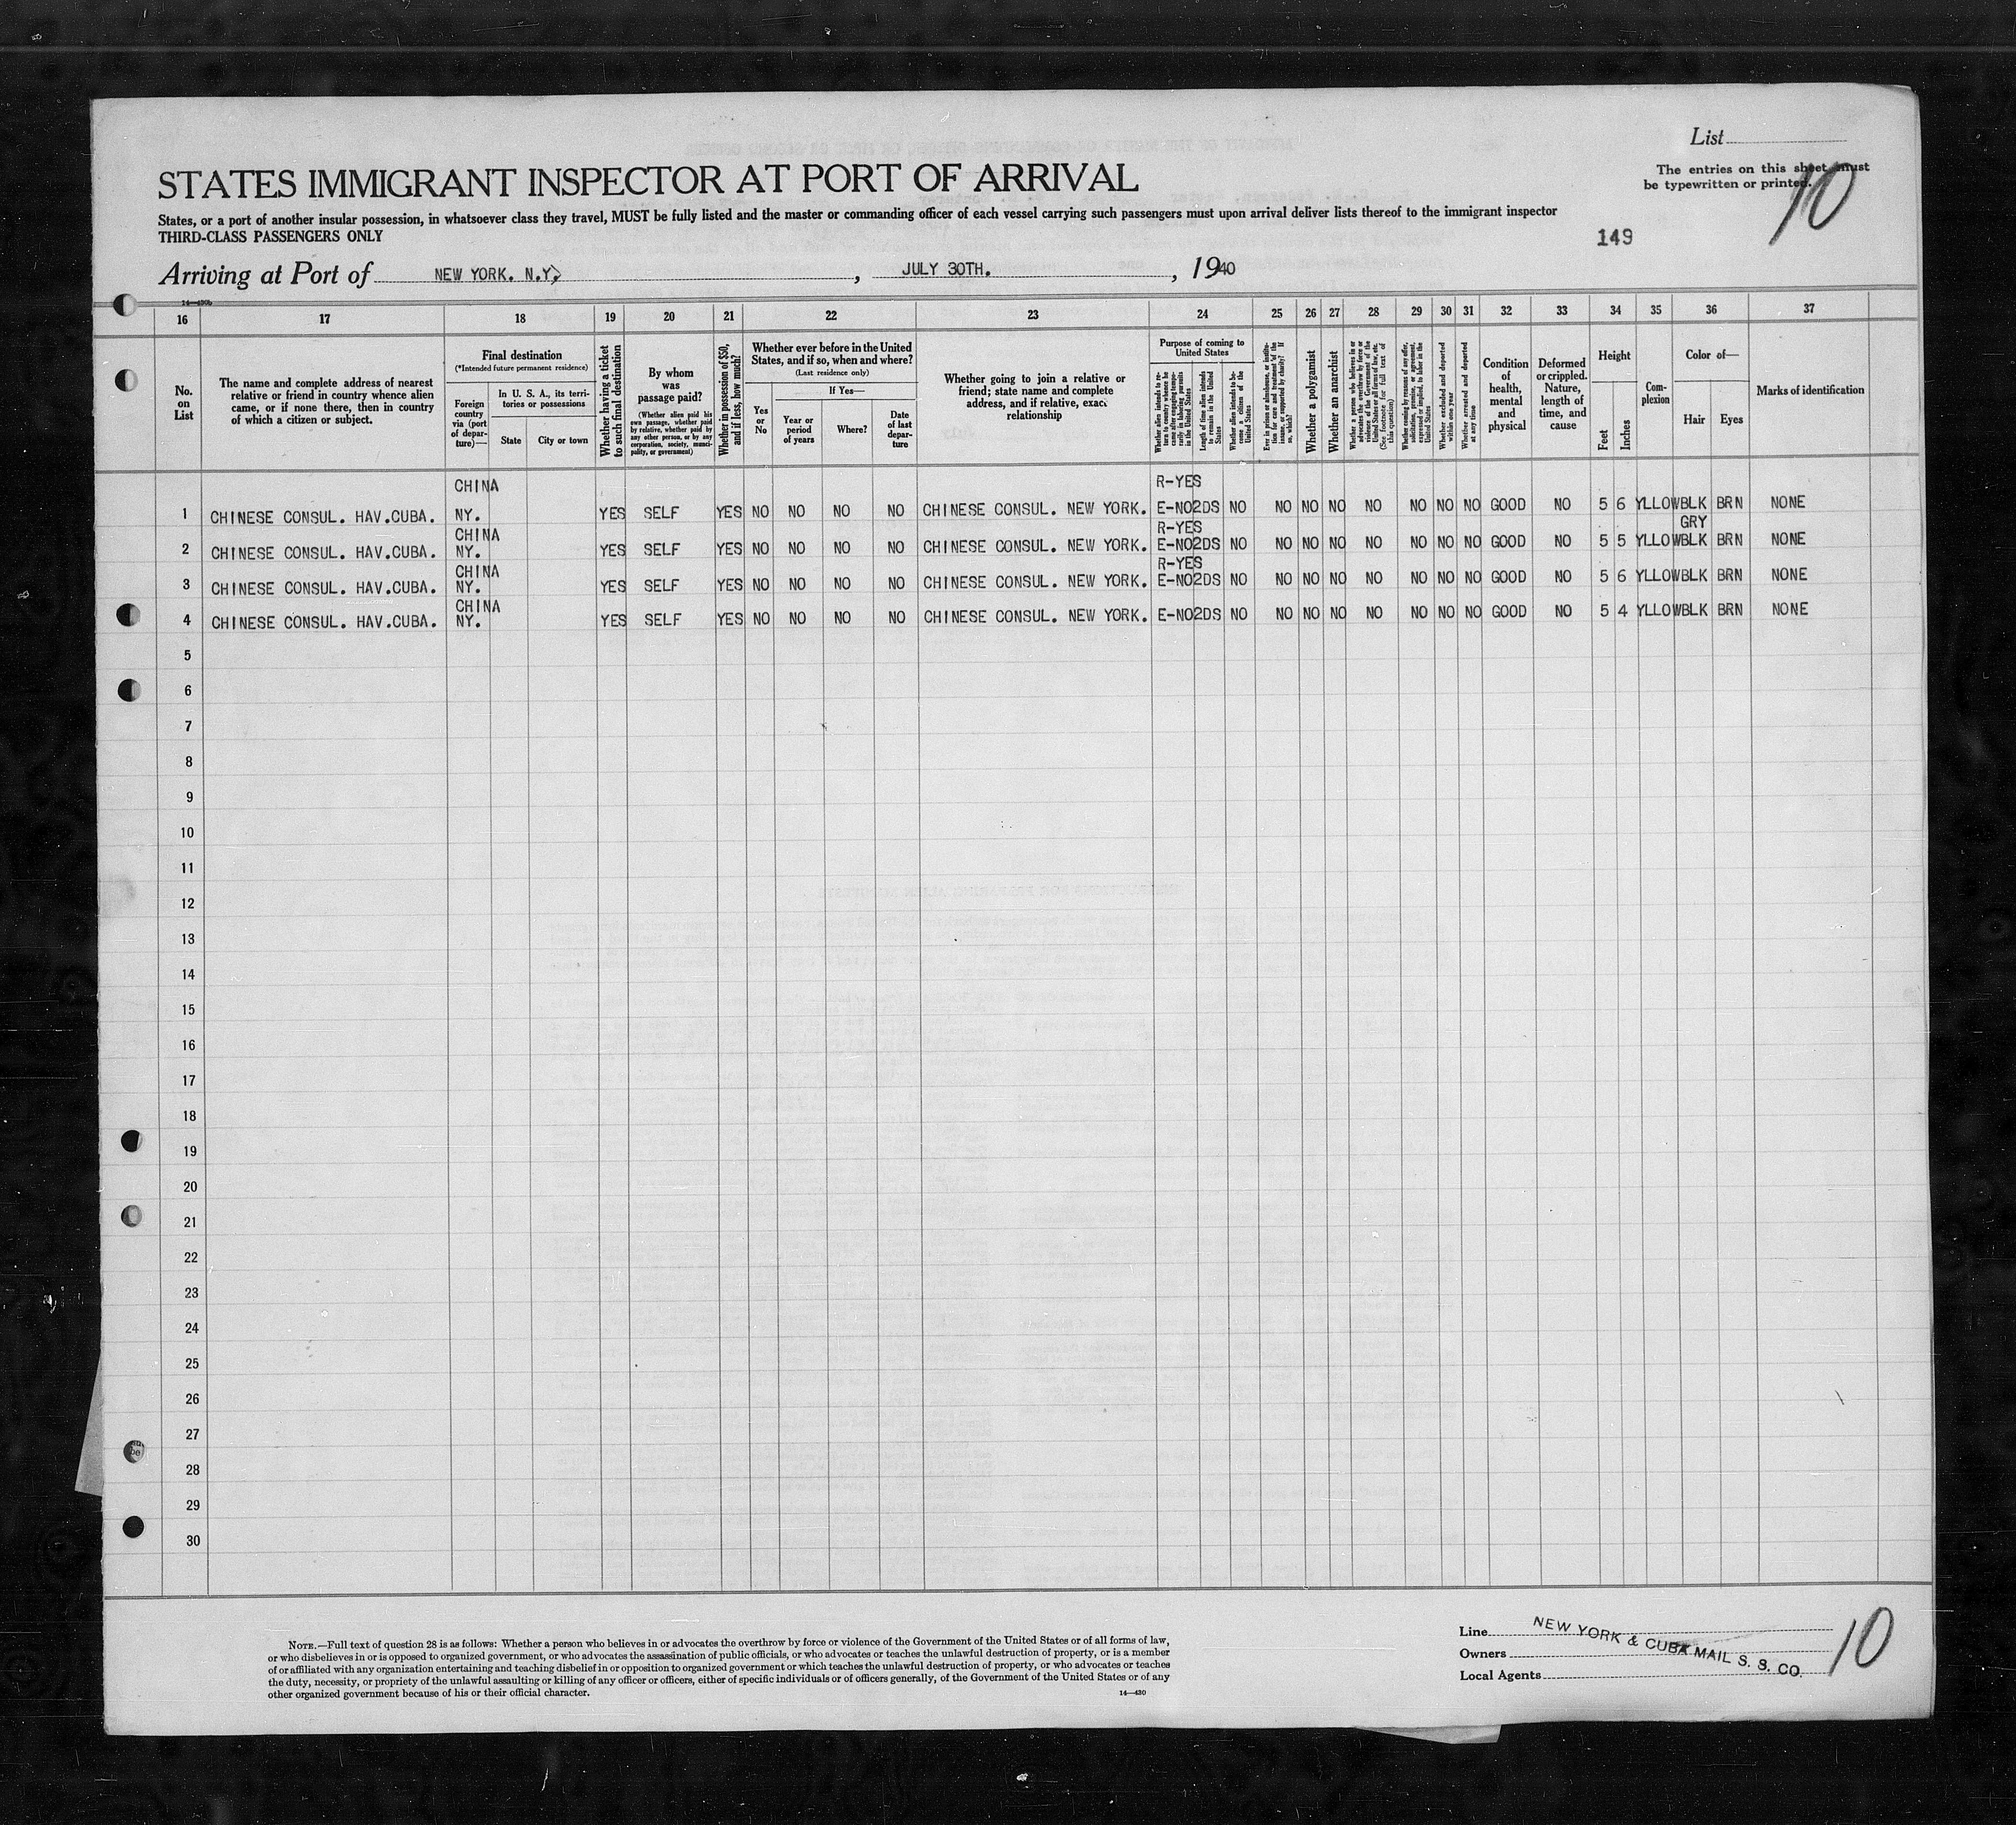 List
The entries on this sheet must
be typewritten or printed.
10
STATES IMMIGRANT INSPECTOR AT PORT OF ARRIVAL
States, or a port of another insular possession, in whatsoever class they travel, MUST be fully listed and the master or commanding officer of each vessel carrying such passengers must upon arrival deliver lists thereof to the immigrant inspector
THIRD-CLASS PASSENGERS ONLY
149
Arriving at Port of NEW YORK. N.Y. , JULY 30TH. , 1940
14—430b
16 17 18 19 20 21 22 23 24 25 26 27 28 29 30 31 32 33 34 35 36 37
No. on List
The name and complete address of nearest relative or friend in country whence alien came, or if none there, then in country of which a citizen or subject.
Final destination
(*Intended future permanent residence)
Foreign country via (port of departure)—
In U. S. A., its territories or possessions
State
City or town
Whether having a ticket to such final destination
By whom was passage paid?
(Whether alien paid his own passage, whether paid by relative, whether paid by any other person, or by any corporation, society, municipality, or government)
Whether in possession of $50, and if less, how much?
Whether ever before in the United States, and if so, when and where?
(Last residence only)
Yes or No
If Yes—
Year or period of years
Where?
Date of last departure
Whether going to join a relative or friend; state name and complete address, and if relative, exact relationship
Purpose of coming to United States
Whether alien intends to return to country whence he came after engaging temporarily in laboring pursuits in the United States
Length of time alien intends to remain in the United States
Whether alien intends to become a citizen of the United States
Ever in prison or almshouse, or institution for care and treatment of the insane, or supported by charity? If so, which?
Whether a polygamist
Whether an anarchist
Whether a person who believes in or advocates the overthrow by force or violence of the Government of the United States or all forms of law, etc. (See footnote for full text of this question)
Whether coming by reason of any offer, solicitation, promise, or agreement, expressed or implied, to labor in the United States
Whether excluded and deported within one year
Whether arrested and deported at any time
Condition of health, mental and physical
Deformed or crippled. Nature, length of time, and cause
Height
Feet
Inches
Complexion
Color of—
Hair
Eyes
Marks of identification
CHINA R-YES
1 CHINESE CONSUL. HAV.CUBA. NY. YES SELF YES NO NO NO NO CHINESE CONSUL. NEW YORK. E-NO 2DS NO NO NO NO NO NO NO NO GOOD NO 5 6 YLLOW BLK BRN NONE
CHINA R-YES GRY
2 CHINESE CONSUL. HAV.CUBA. NY. YES SELF YES NO NO NO NO CHINESE CONSUL. NEW YORK. E-NO 2DS NO NO NO NO NO NO NO NO GOOD NO 5 5 YLLOW BLK BRN NONE
CHINA R-YES
3 CHINESE CONSUL. HAV.CUBA. NY. YES SELF YES NO NO NO NO CHINESE CONSUL. NEW YORK. E-NO 2DS NO NO NO NO NO NO NO NO GOOD NO 5 6 YLLOW BLK BRN NONE
CHINA
4 CHINESE CONSUL. HAV.CUBA. NY. YES SELF YES NO NO NO NO CHINESE CONSUL. NEW YORK. E-NO 2DS NO NO NO NO NO NO NO NO GOOD NO 5 4 YLLOW BLK BRN NONE
5
6
7
8
9
10
11
12
13
14
15
16
17
18
19
20
21
22
23
24
25
26
27
28
29
30
NOTE.—Full text of question 28 is as follows: Whether a person who believes in or advocates the overthrow by force or violence of the Government of the United States or of all forms of law,
or who disbelieves in or is opposed to organized government, or who advocates the assassination of public officials, or who advocates or teaches the unlawful destruction of property, or is a member
of or affiliated with any organization entertaining and teaching disbelief in or opposition to organized government or which teaches the unlawful destruction of property, or who advocates or teaches
the duty, necessity, or propriety of the unlawful assaulting or killing of any officer or officers, either of specific individuals or of officers generally, of the Government of the United States or of any
other organized government because of his or their official character.
14—430
Line
Owners
Local Agents
NEW YORK & CUBA MAIL S. S. CO.
10